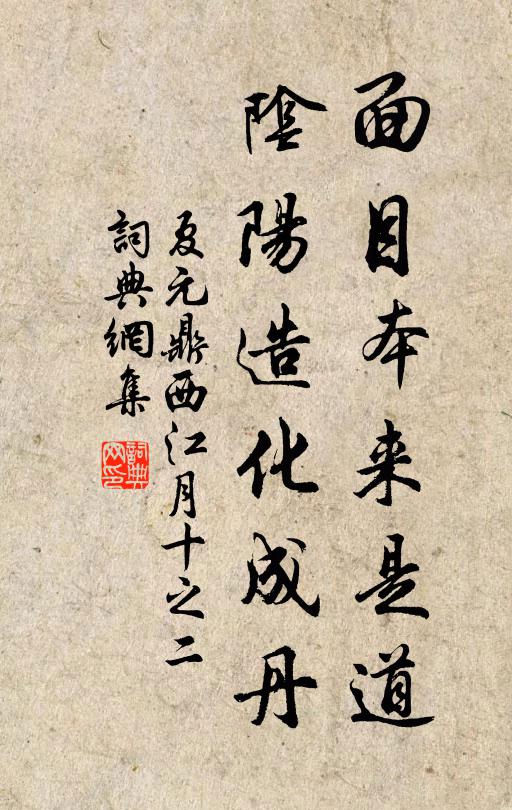 面目本来是道
陰陽造化成丹
夏元鼎西江月十之二
詞典網集
詞典网印